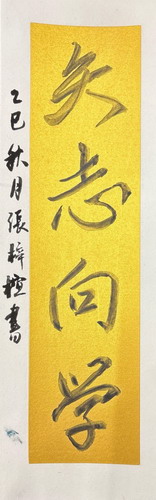 矢志向学
乙巳秋月張梓楦書